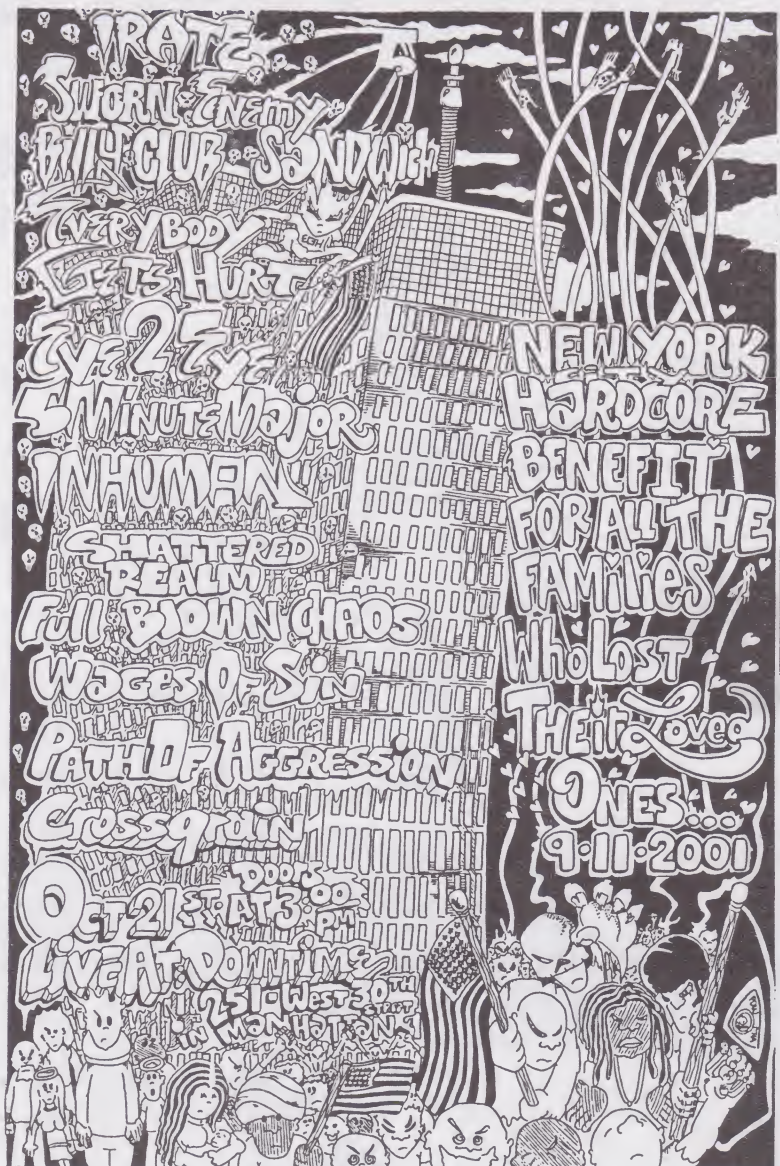 IRATE
SWORN ENEMY
BILLY CLUB SANDWICH
EVERYBODY
GETS HURT
EYE 2 EYE
5 MINUTE MAJOR
INHUMAN
SHATTERED
REALM
FULL BLOWN CHAOS
WAGES OF SIN
PATH OF AGGRESSION
CROSSGRAIN
OCT 21ST DOORS AT 3:00 PM
LIVE AT DOWNTIME
251 WEST 30TH STREET
IN MANHATTAN
NEW YORK
HARDCORE
BENEFIT
FOR ALL THE
FAMILIES
WHO LOST
THEIR LOVED
ONES...
9·11·2001